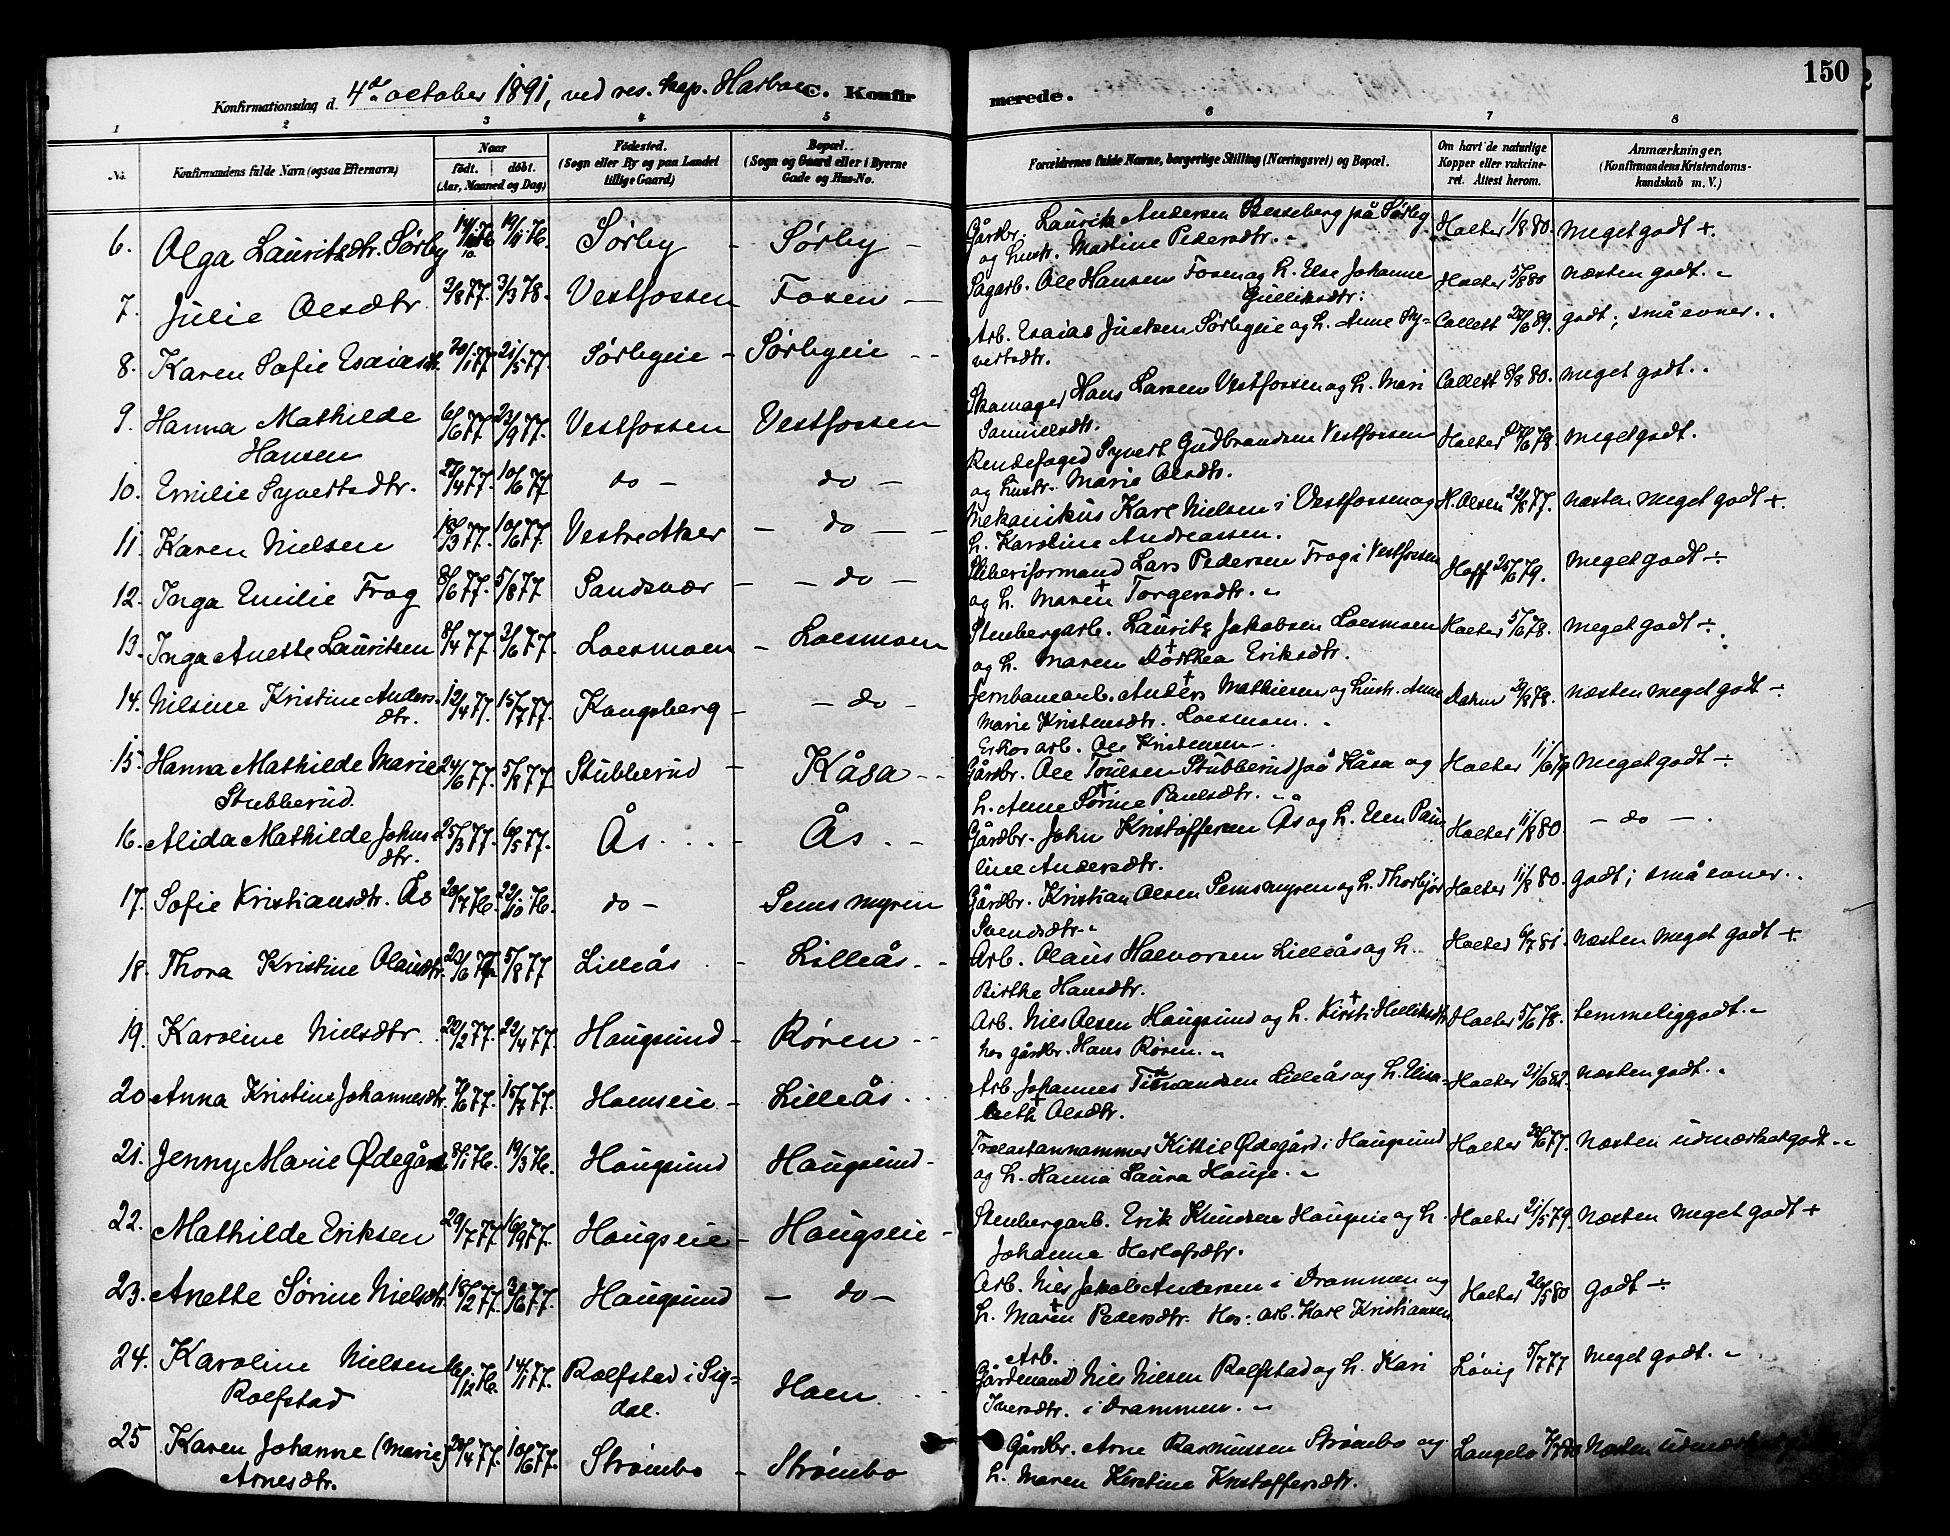 150
Konfirmationsdag d. 4de october 1891, ved res. kap. C. Konfir
merede.
1 2 3 4 5 6 7 8
No. Konfirmandens fulde Navn (ogsaa Efternavn) Naar født. døbt. (Aar, Maaned og Dag) Fødested. (Sogn eller By og paa Landet tillige Gaard) Bopæl. (Sogn og Gaard eller i Byerne Gade og Hus-No. Forældrenes fulde Navne, borgerlige Stilling (Næringsvei) og Bopæl. Om havt de naturlige Kopper eller vakcineret. Attest herom. Anmærkninger. (Konfirmandens Kristendomskundskab m. V.)
6. Olga Lauritsdtr. Sørby 19/11 76. Sørby - Sørby - Gårdbr. Laurits Andersen Besseberg på Sørby Holter 1/8 80. Meget godt +.
og hustr. Martine Pedersdtr. -
7. Julie Olsdtr 3/3 78. Vestfossen Fosen - Sagarb. Ole Hansen Fosen og h. Else Johanne Holter 5/8 80 Næsten godt. -
Gulliksdtr:
8. Karen Sofie Esaiasdtr. 20/1 77 21/5 77. Sørbyeie - Sørbyeie - Arb. Esaias Justsen Sørbyeie og h. Anne Sy- Collett godt; små evner.
vertsdtr.
9. Hanna Mathilde 6/6 77 23/9 77. Vestfossen Vestfossen Skomager Hans Larsen Vestfossen og h. Mari Collett 8/8 80. Meget godt.
Hansen Samuelsdtr.
10. Emilie Syvertsdtr. 27/4 77. 10/6 77 do - do - Rendefoged Syvert Gudbrandsen Vestfossen Holter Meget godt.
og hustr. Marie Olsdtr.
11. Karen Nielsen 18/3 77. 10/6 77. Vestre Aker - do - Mekanikus Karl Nielsen i Vestfossen og N. Olsen 22/8 77. Næsten meget godt +.
h. Karoline Andreassen.
12. Inga Emilie Frog 8/6 77. 5/8 77 Sandsvær - do - Sliberiformand Lars Pedersen Frog i Vestfossen Hoff 25/6 79. Meget godt ÷
og h. Maren Torgersdtr. -
13. Inga Anette Lauritsen 8/4 77. 3/6 77. Loesmoen - Loesmoen Stenbergarb. Laurits Jakobsen Loesmoen Holter 5/6 78. Meget godt ÷.
og h. Maren Dorthea Eriksdtr.
14. Nilsine Kristine Anders- 12/4 77. 15/7 77. Kongsberg - do - Jernbanearb. Anders Mathiesen og hustr. Anne Næsten meget godt ÷
dtr. Marie Kristensdtr. Loesmoen.
Ole Kristensen -.
15. Hanna Mathilde Marie 24/6 77. 5/8 77. Stubberud - Kåsa - Gårdbr. Ole Stubberud på Kåsa og Holter 11/6 79 Meget godt ÷
Stubberud h. Anne Sørine Paulsdtr. -
16. Alida Mathilde Johns- 25/3 77. 6/5 77. Ås - Ås - Gårdbr. John Kristoffersen Ås og h. Elen Pau- Holter 11/8 80. - do -
dtr. line Andersdtr.
17. Sofie Kristiansdtr. Ås 20/7 76. 22/10 76. do - Semsmyren Gårdbr. Kristian Olsen Semsmyren og h. Thorbjør Holter 11/8 80. godt; små evner.
Svendsdtr. -
18. Thora Kristine Olausdtr. 5/8 77 Lilleås - Lilleås - Arb. Olaus Halvorsen Lilleås og h. Holter 6/7 81. Næsten meget godt +.
Birthe Hansdtr.
19. Karoline Nielsdtr. 22/2 77. 22/4 77. Hougsund - Røren - Arb. Niels Olsen Hougsund og h. Kirsti Helliksdtr. Holter 5/6 78. temmelig godt. -
hos gårdbr. Hans Røren. -
20 Anna Kristine Johannesdtr. 7/6 77. 15/7 77. Hoenseie - Lilleås Arb Johannes Lilleås og h. Elisa- Holter 21/6 82. Næsten godt.
beth Olsdtr.
21. Jenny Marie Ødegård 8/1 76. 19/3 76. Hougsund Hougsund - Kittil Ødegård i Hougsund Holter Næsten udmærket godt. -
og h. Hanna Laura Houge. -
22. Mathilde Eriksen 29/7 77. 16/9 77. Hougseie - Hougseie - Stenbergarb. Erik Knudsen Hougseie og h. Holter 21/5 79. Næsten meget godt +
Johanna Herlofsdtr.
23. Anette Sørine Nielsdtr. 18/2 77. 3/6 77. Hougsund - do - Arb. Niels Jakob Andersen i Drammen og Holter 26/5 80 Godt ÷
h. Maren Pedersdtr. Hos: arb. Karl Kristiansen
24. Karoline Nielsen 14/1 77. Rolfstad i Sig- Hoen Arb.
Rolfstad dal. Gårdmand Niels Nilsen Rolfstad og h. Kari Løvig 5/7 77 Meget godt. -
Iversdtr. i Drammen. -
25 Karen Johanne (Marie) 10/6 77. Strømbo - Strømbo Gårdbr. Arne Rasmussen Strømbo og Langelo Næsten udmærket
Arnesdtr. h. Maren Kirstine Kristoffersdtr.